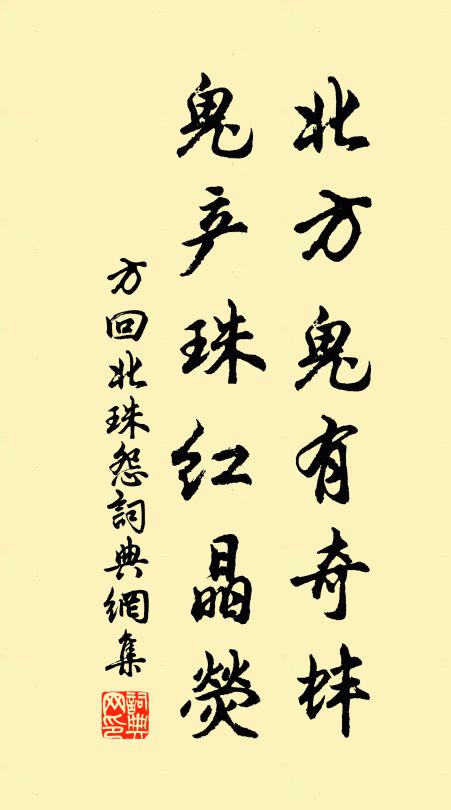 北方鬼有奇蚌
鬼产珠红晶熒
方回北珠怨詞典網集
詞典网印